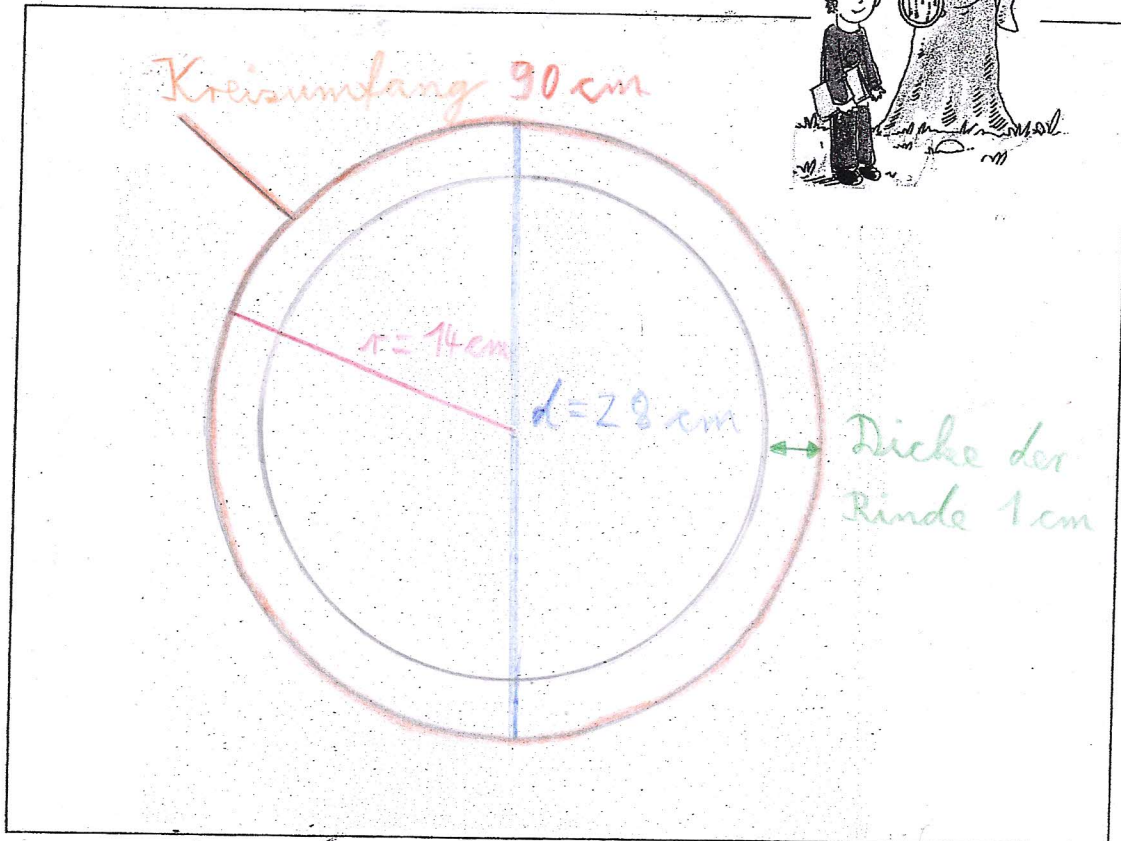 Kreisumfang 90 cm
r = 14 cm
d = 28 cm
Dicke der
Rinde 1 cm